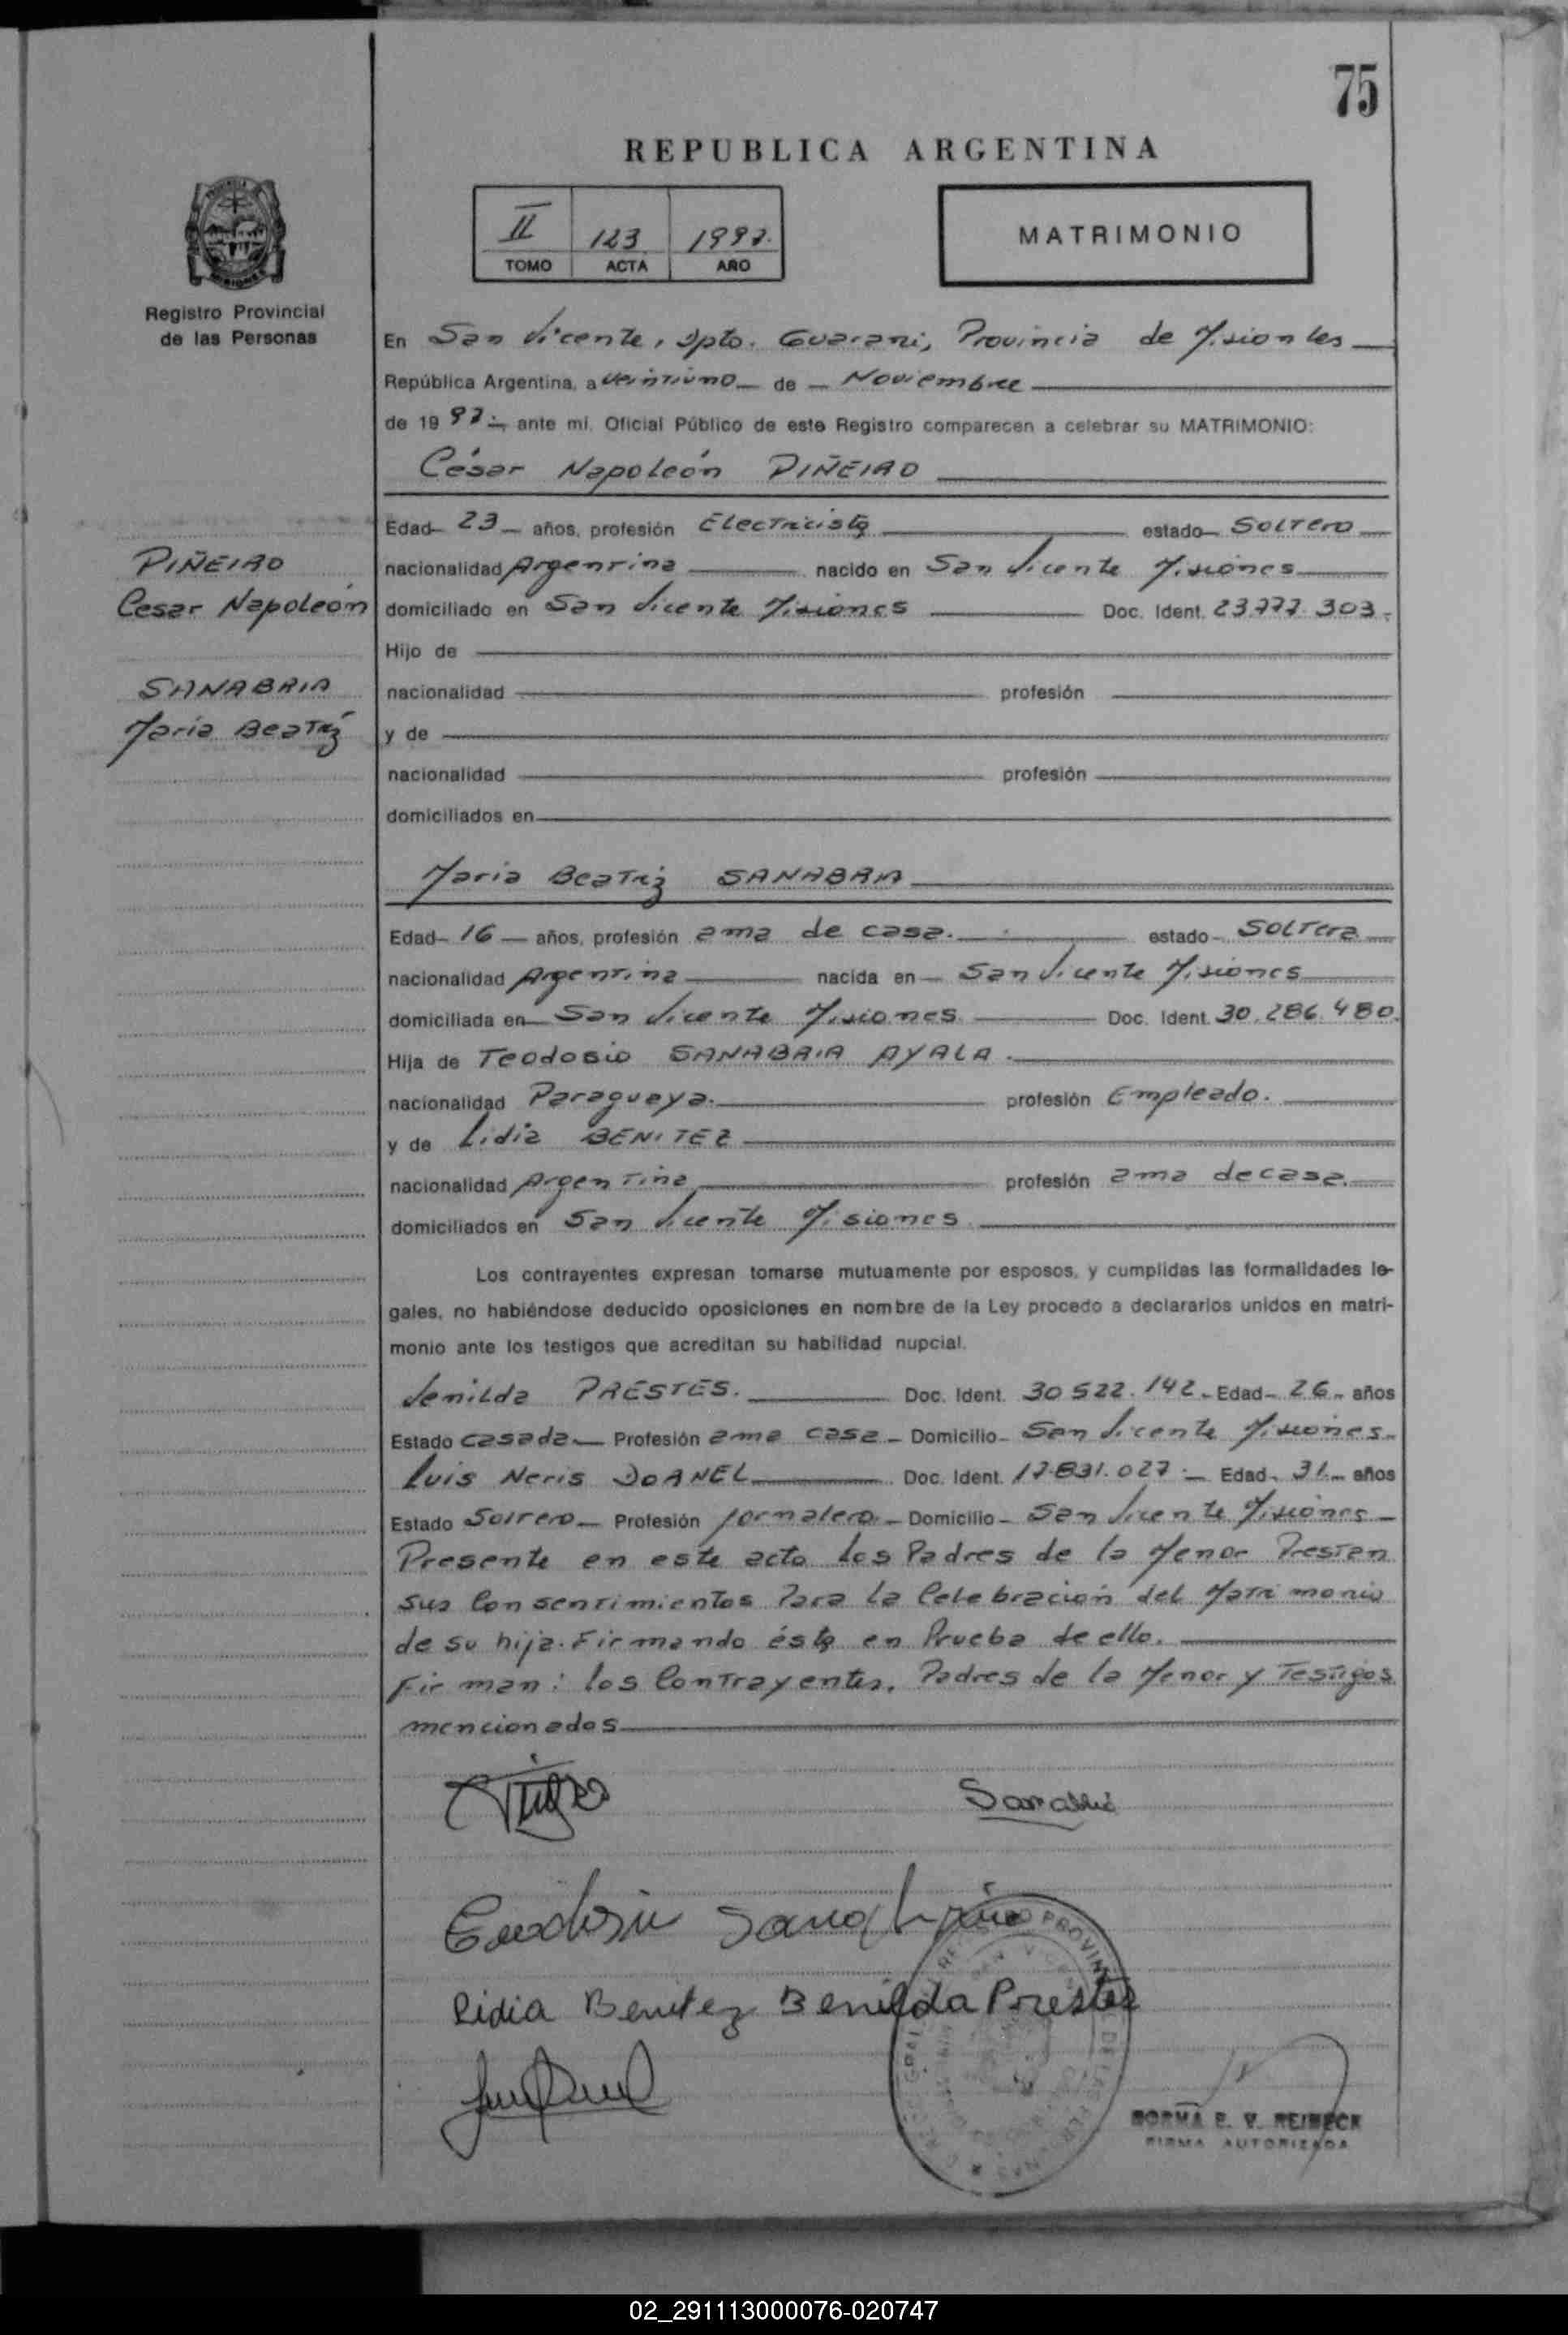 75
REPUBLICA ARGENTINA
II 123 1997.
TOMO ACTA AÑO
MATRIMONIO
Registro Provincial
de las Personas
En San Vicente, Dpto. Guarani, Provincia de Misiones
República Argentina, a veintiuno de Noviembre
de 1997. ante mí, Oficial Público de este Registro comparecen a celebrar su MATRIMONIO:
César Napoleón PIÑEIRO
Edad 23 años, profesión Electricista estado Soltero
PIÑEIRO
Cesar Napoleón
SANABRIA
Maria Beatriz
nacionalidad Argentina nacido en San Vicente Misiones
domiciliado en San Vicente Misiones Doc. Ident. 23.777.303.
Hijo de
nacionalidad profesión
y de
nacionalidad profesión
domiciliados en
Maria Beatriz SANABRIA
Edad 16 años, profesión ama de casa. estado Soltera
nacionalidad Argentina nacida en San Vicente Misiones
domiciliada en San Vicente Misiones Doc. Ident. 30.286.480.
Hija de Teodosio SANABRIA AYALA.
nacionalidad Paraguaya. profesión Empleado.
y de Lidia BENITEZ
nacionalidad Argentina profesión ama de casa.
domiciliados en San Vicente Misiones
Los contrayentes expresan tomarse mutuamente por esposos, y cumplidas las formalidades le-
gales, no habiéndose deducido oposiciones en nombre de la Ley procedo a declararlos unidos en matri-
monio ante los testigos que acreditan su habilidad nupcial.
Venilda PRESTES. Doc. Ident. 30.522.142 Edad 26 años
Estado Casada Profesión ama casa Domicilio San Vicente Misiones
Luis Neris DORNEL Doc. Ident. 17.831.027. Edad 31 años
Estado Soltero Profesión Jornalero Domicilio San Vicente Misiones
Presente en este acto los Padres de la Menor Prestan
sus Consentimientos Para la Celebración del Matrimonio
de su hija. Firmando ésta en Prueba de ello.
Firman: los Contrayentes, Padres de la Menor y Testigos
mencionados
Sanabria
Teodosio Sanabria
Lidia Benitez Benilda Prestes
NORMA E. V. REINECK
FIRMA AUTORIZADA
02_291113000076-020747